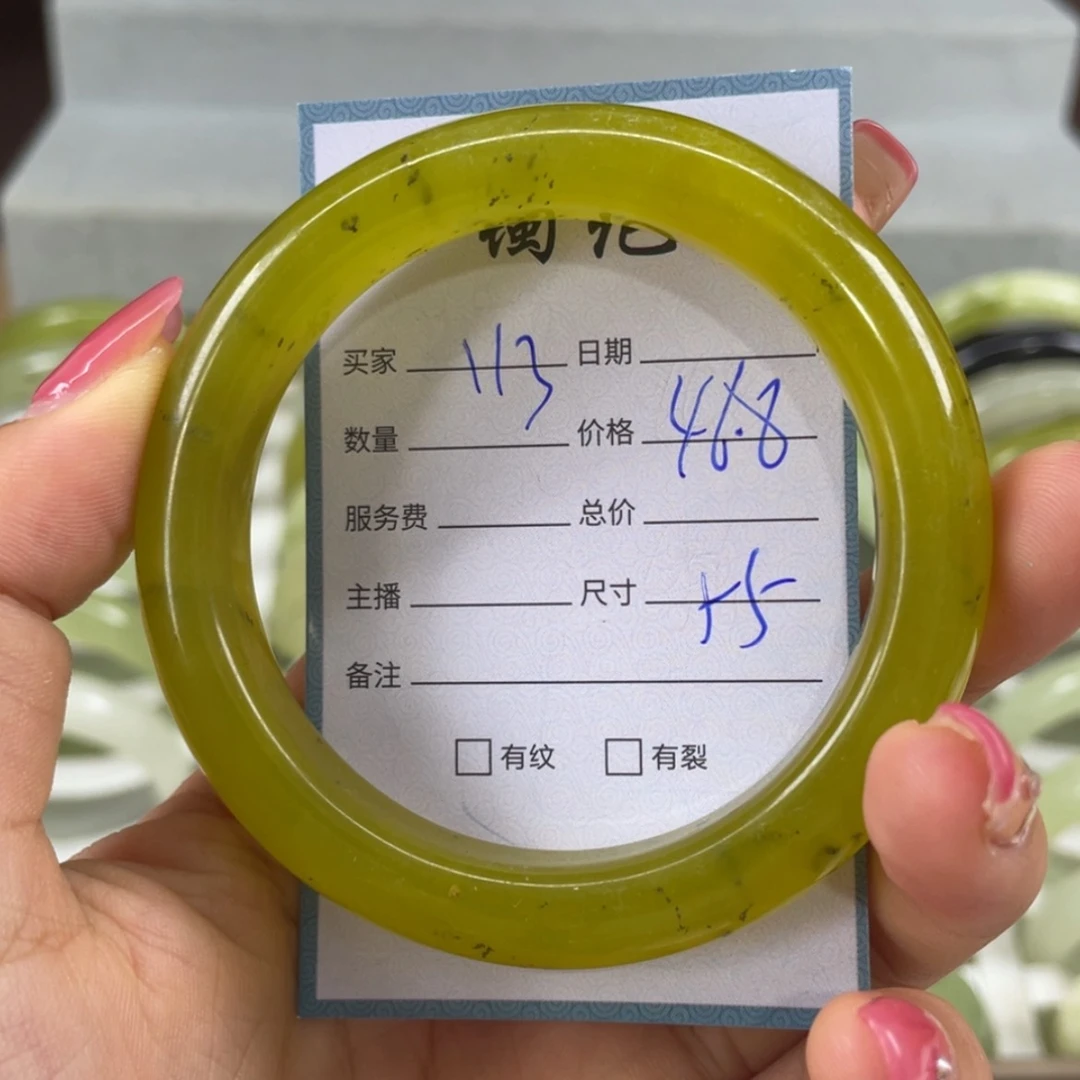 买家 113 日期
数量 价格
服务费 总价
主播 尺寸
备注
有纹 有裂